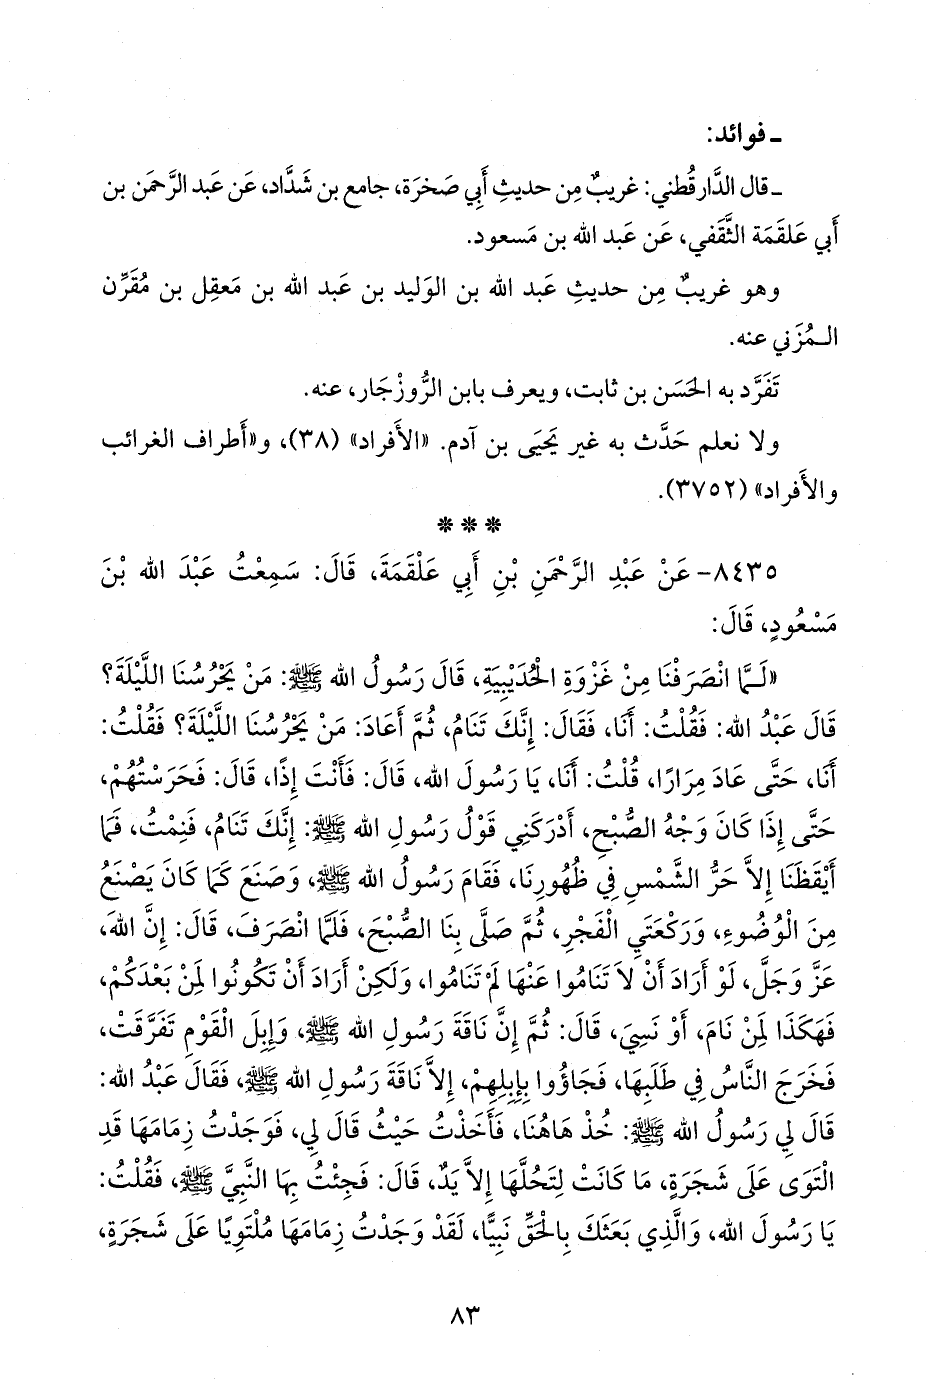 ـ فوائد:
ـ قال الدَّارقُطني: غريبٌ مِن حديثِ أَبي صَخرَة، جامع بن شَدَّاد، عَن عَبد الرَّحمَن بن
أَبي عَلقَمَة الثَّقَفي، عَن عَبد الله بن مَسعود.
وهو غريبٌ مِن حديثِ عَبد الله بن الوَليد بن عَبد الله بن مَعقِل بن مُقَرِّن
الـمُزَني عنه.
تَفَرَّد به الحَسَن بن ثابت، ويعرف بابن الرُّوزْجَار، عنه.
ولا نعلم حَدَّث به غير يَحيَى بن آدم. «الأَفراد» (٣٨)، و«أَطراف الغرائب
والأَفراد» (٣٧٥٢).
* * *
٨٤٣٥- عَنْ عَبْدِ الرَّحْمَنِ بْنِ أَبِي عَلْقَمَةَ، قَالَ: سَمِعْتُ عَبْدَ الله بْنَ
مَسْعُودٍ، قَالَ:
«لَـمَّا انْصَرَفْنَا مِنْ غَزْوَةِ الْحُدَيْبِيَةِ، قَالَ رَسُولُ الله ﷺ: مَنْ يَحْرُسُنَا اللَّيْلَةَ؟
قَالَ عَبْدُ الله: فَقُلْتُ: أَنَا، فَقَالَ: إِنَّكَ تَنَامُ، ثُمَّ أَعَادَ: مَنْ يَحْرُسُنَا اللَّيْلَةَ؟ فَقُلْتُ:
أَنَا، حَتَّى عَادَ مِرَارًا، قُلْتُ: أَنَا، يَا رَسُولَ الله، قَالَ: فَأَنْتَ إِذًا، قَالَ: فَحَرَسْتُهُمْ،
حَتَّى إِذَا كَانَ وَجْهُ الصُّبْحِ، أَدْرَكَنِي قَوْلُ رَسُولِ الله ﷺ: إِنَّكَ تَنَامُ، فَنِمْتُ، فَمَا
أَيْقَظَنَا إِلاَّ حَرُّ الشَّمْسِ فِي ظُهُورِنَا، فَقَامَ رَسُولُ الله ﷺ، وَصَنَعَ كَمَا كَانَ يَصْنَعُ
مِنَ الْوُضُوءِ، وَرَكْعَتَيِ الْفَجْرِ، ثُمَّ صَلَّى بِنَا الصُّبْحَ، فَلَمَّا انْصَرَفَ، قَالَ: إِنَّ اللهَ،
عَزَّ وَجَلَّ، لَوْ أَرَادَ أَنْ لاَ تَنَامُوا عَنْهَا لَمْ تَنَامُوا، وَلَكِنْ أَرَادَ أَنْ تَكُونُوا لِمَنْ بَعْدَكُمْ،
فَهَكَذَا لِمَنْ نَامَ، أَوْ نَسِيَ، قَالَ: ثُمَّ إِنَّ نَاقَةَ رَسُولِ الله ﷺ، وَإِبِلَ الْقَوْمِ تَفَرَّقَتْ،
فَخَرَجَ النَّاسُ فِي طَلَبِهَا، فَجَاؤُوا بِإِبِلِهِمْ، إِلاَّ نَاقَةَ رَسُولِ الله ﷺ، فَقَالَ عَبْدُ الله:
قَالَ لِي رَسُولُ الله ﷺ: خُذْ هَاهُنَا، فَأَخَذْتُ حَيْثُ قَالَ لِي، فَوَجَدْتُ زِمَامَهَا قَدِ
الْتَوَى عَلَى شَجَرَةٍ، مَا كَانَتْ لِتَحُلَّهَا إِلاَّ يَدٌ، قَالَ: فَجِئْتُ بِهَا النَّبِيَّ ﷺ، فَقُلْتُ:
يَا رَسُولَ الله، وَالَّذِي بَعَثَكَ بِالْحَقِّ نَبِيًّا، لَقَدْ وَجَدْتُ زِمَامَهَا مُلْتَوِيًا عَلَى شَجَرَةٍ،
٨٣